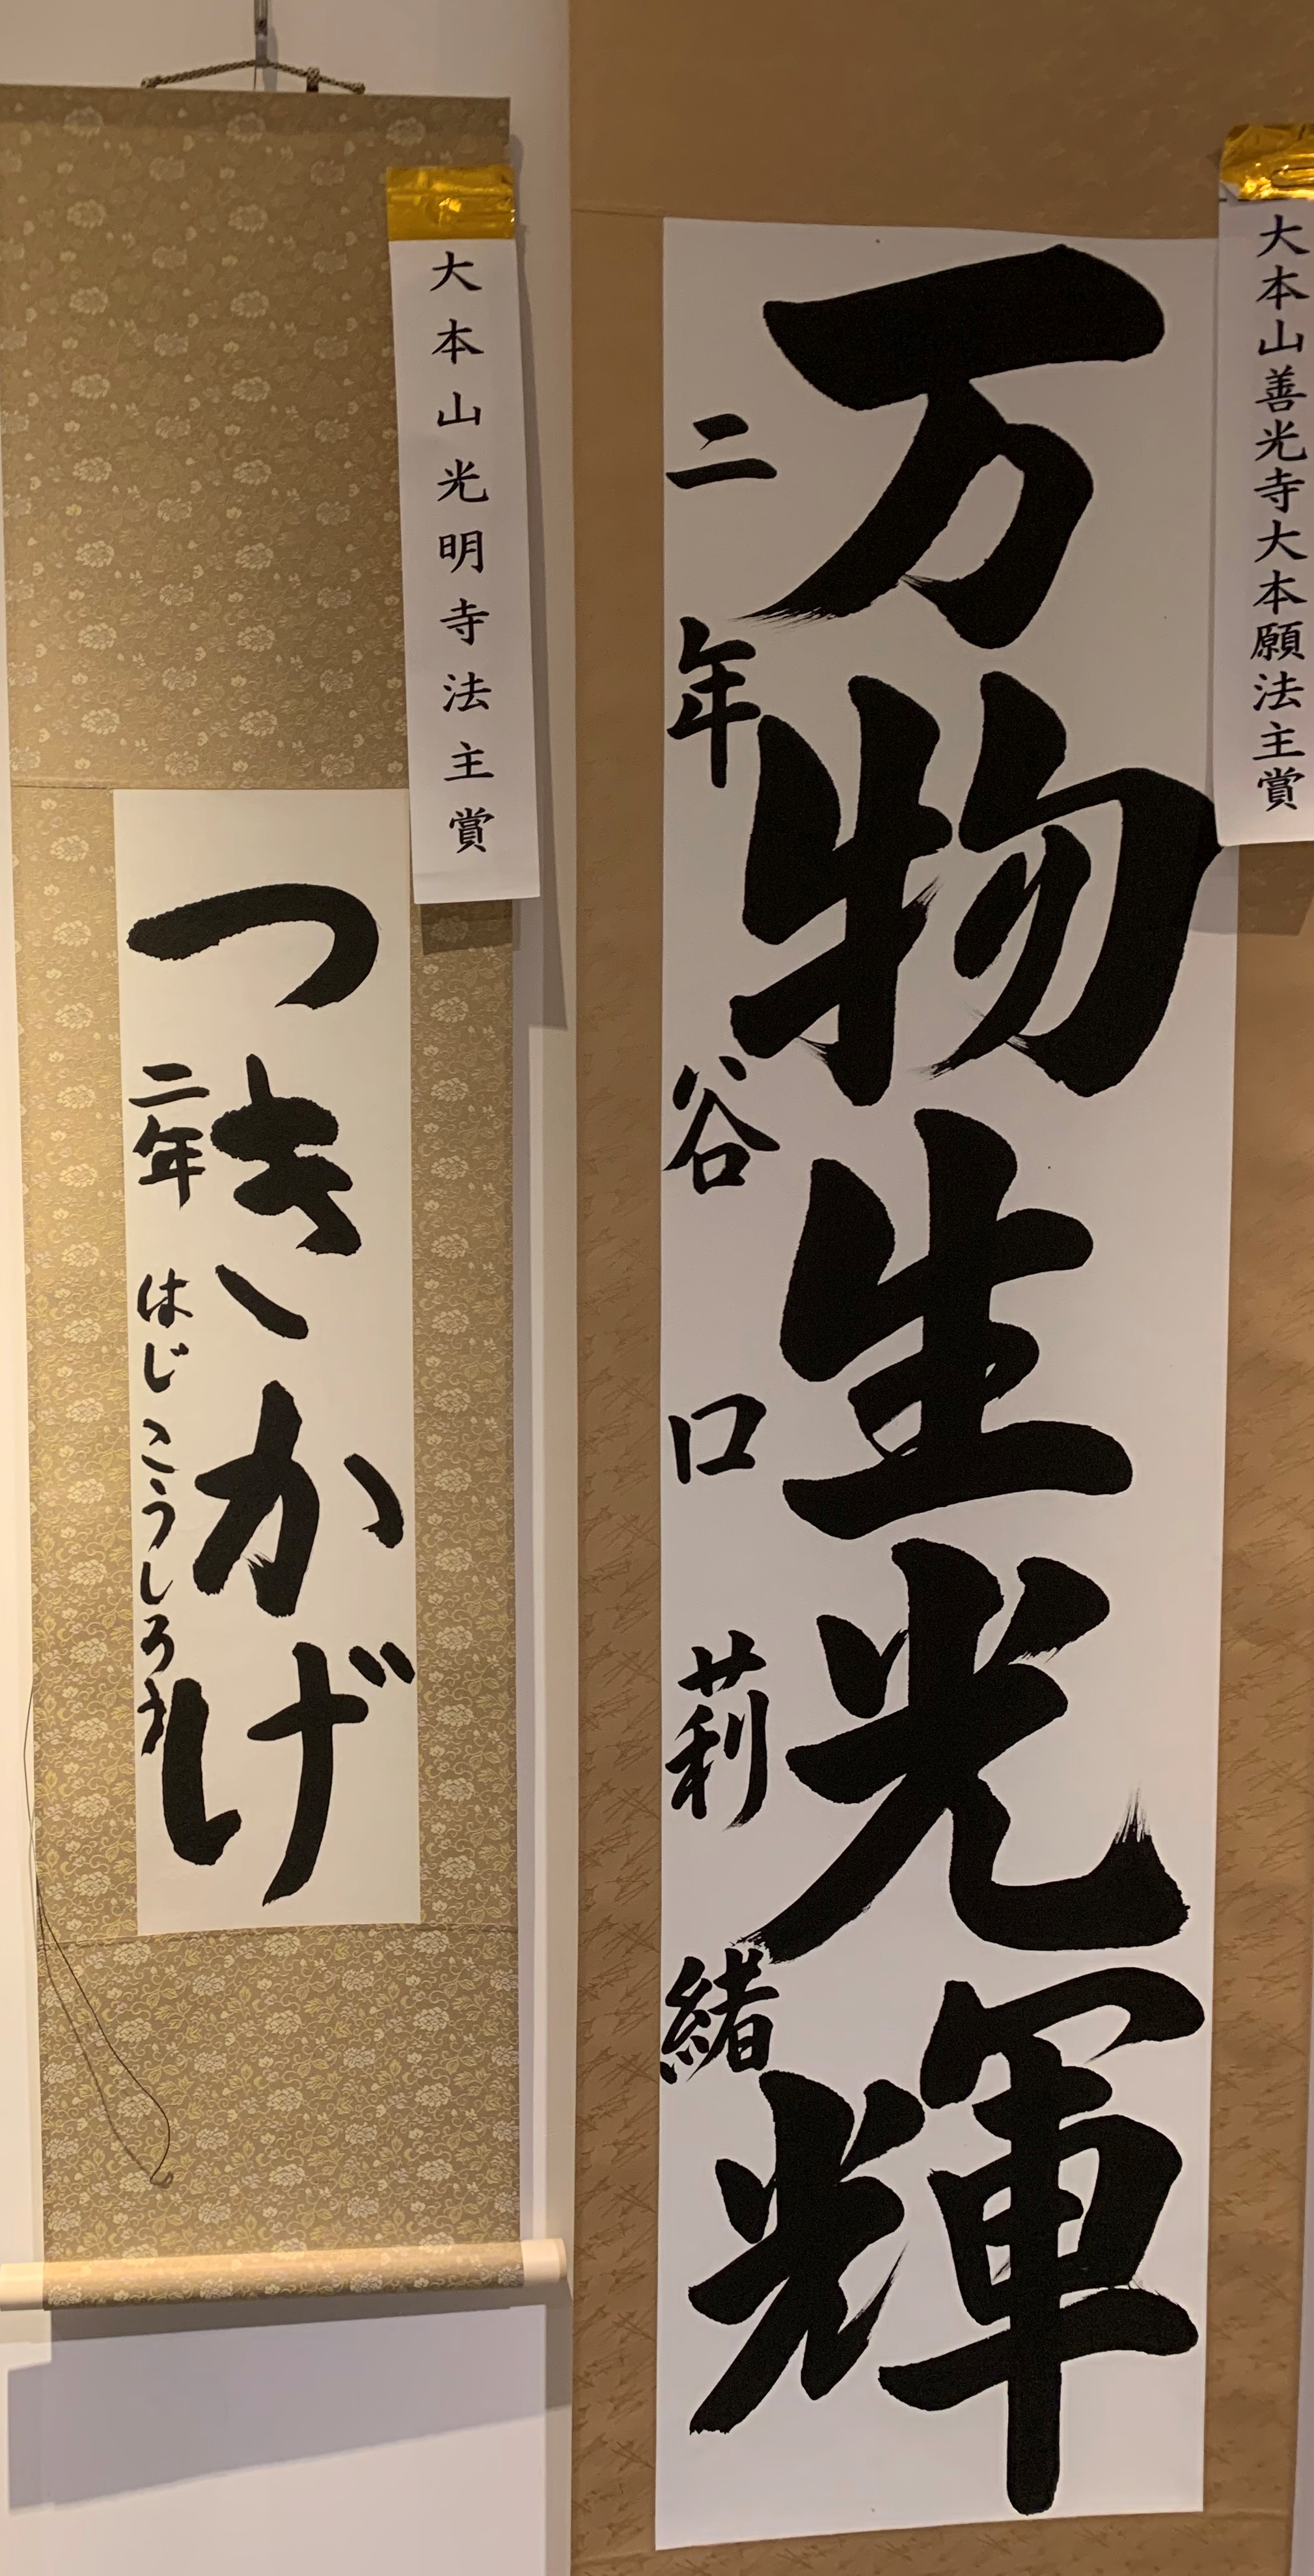 大本山善光寺大本願法主賞
万物生光輝
二年 谷口莉緒
大本山光明寺法主賞
つきかげ
二年 はじこうしろう